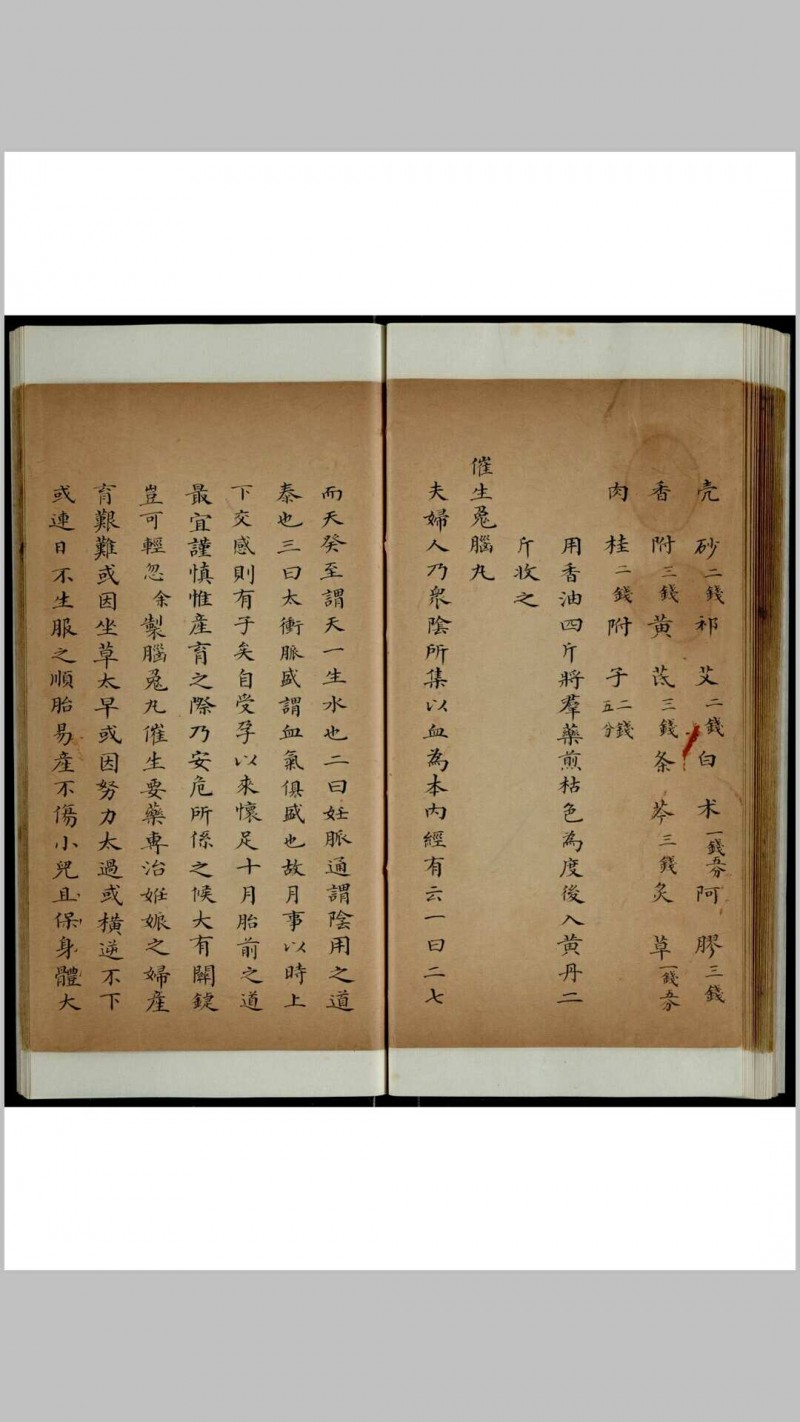 壳砂二錢祁艾二錢白术一錢五分阿膠三錢
香附三錢黃茋三錢条芩三錢炙草一錢五分
肉桂二錢附子二錢五分
用香油四斤將羣藥煎枯色為度後入黃丹二
斤收之
催生兔腦丸
夫婦人乃衆陰所集以血為本內經有云一曰二七
而天癸至謂天一生水也二曰妊脈通謂陰用之道
泰也三曰太衝脈盛謂血氣俱盛也故月事以時上
下交感則有子矣自受孕以來懷足十月胎前之道
最宜謹慎惟產育之際乃安危所係之候大有關鍵
豈可輕忽余製腦兔丸催生要藥專治姙娠之婦產
育艱難或因坐草太早或因努力太過或橫逆不下
或連日不生服之順胎易產不傷小兒且保身體大